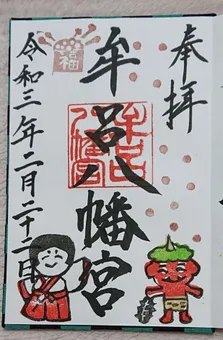 奉拝
牟呂八幡宮
牟呂八幡宮
令和三年二月二十二日
福